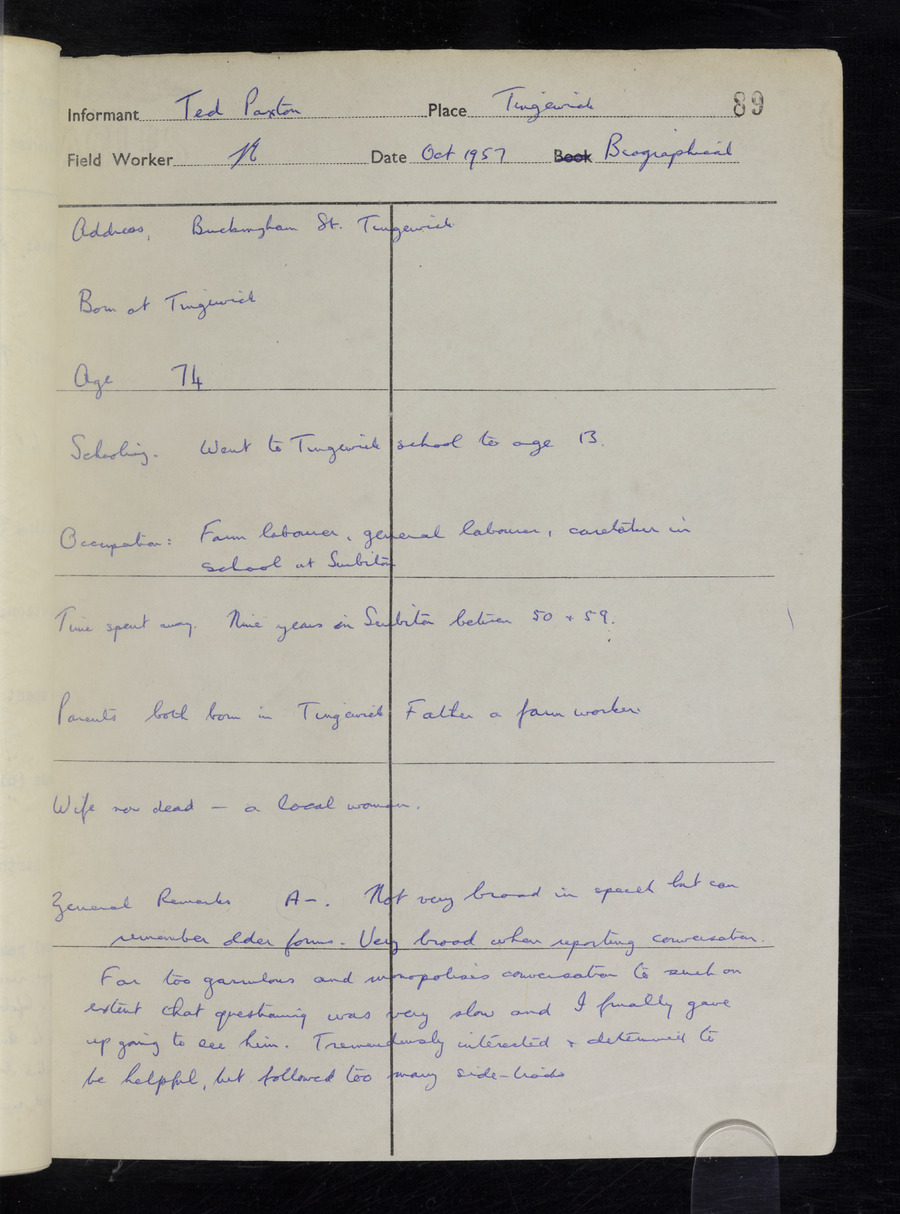 Informant Ted Paxton Place Tingewick 89
Field Worker Date Oct 1957 Book Biographical
Address, Buckingham St. Tingewick
Born at Tingewick
Age 74
Schooling. Went to Tingewick school to age 13.
Occupation: Farm labourer, general labourer, caretaker in
school at Surbiton
Time spent away. Nine years in Surbiton between 50 + 59.
Parents both born in Tingewick Father a farm worker.
Wife now dead – a local woman.
General Remarks A–. Not very broad in speech but can
remember older forms. Very broad when reporting conversation.
Far too garrulous and monopolises conversation to such an
extent that questioning was very slow and I finally gave
up going to see him. Tremendously interested + determined to
be helpful, but followed too many side-tracks